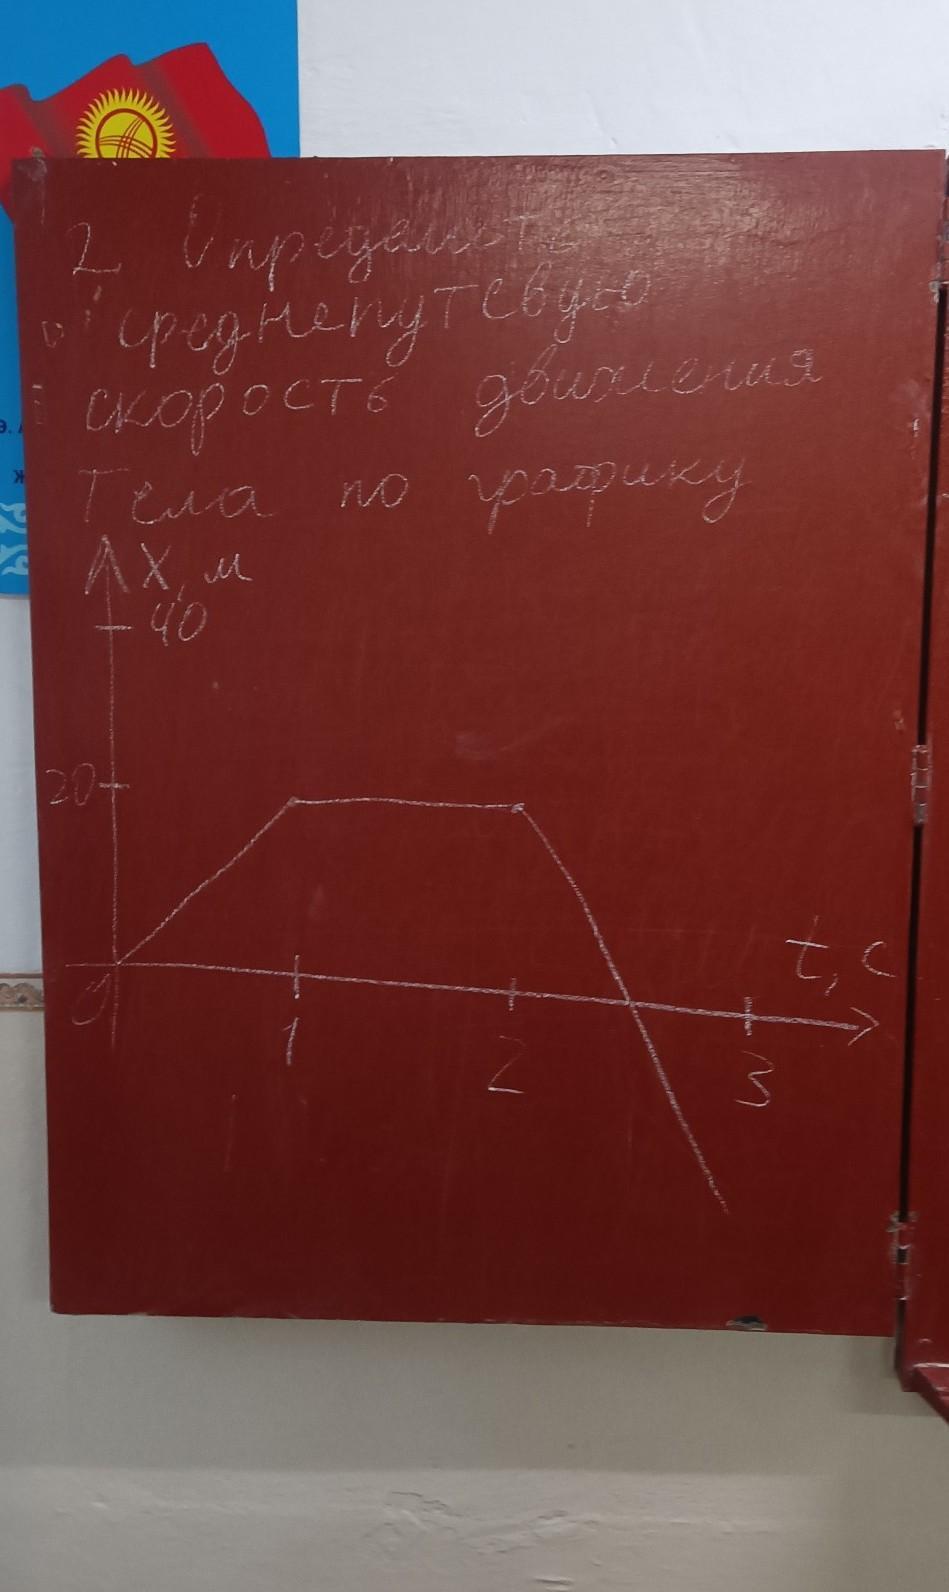 2 Определить
среднепутевую
скорость движения
тела по графику
X, м
40
20
t, с
0
1
2
3